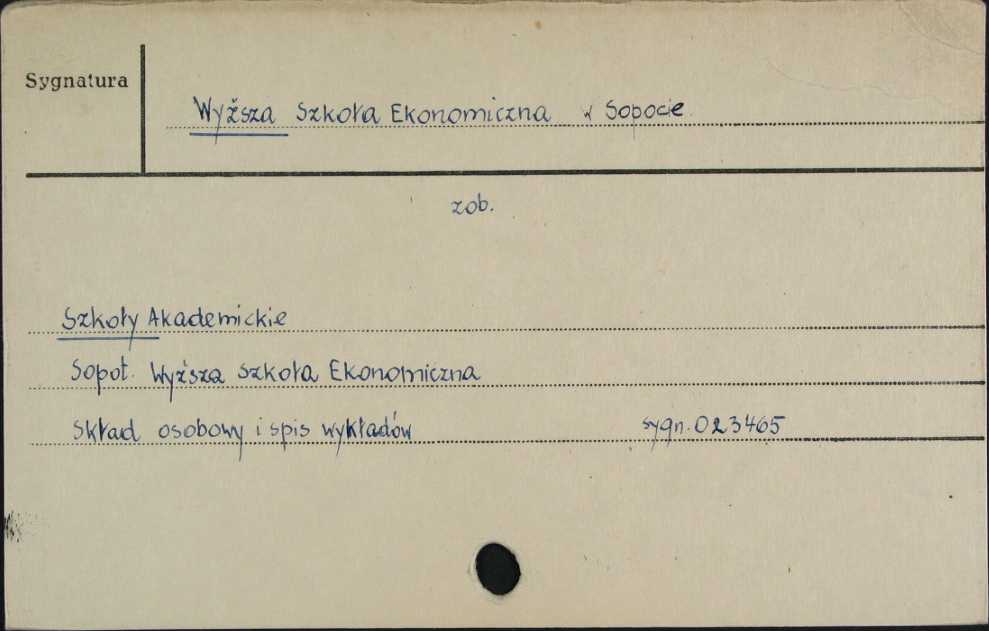 Sygnatura
Wyższa Szkoła Ekonomiczna w Sopocie
zob.
Szkoły Akademickie
Sopot. Wyższa Szkoła Ekonomiczna
Skład osobowy i spis wykładów sygn. 023465